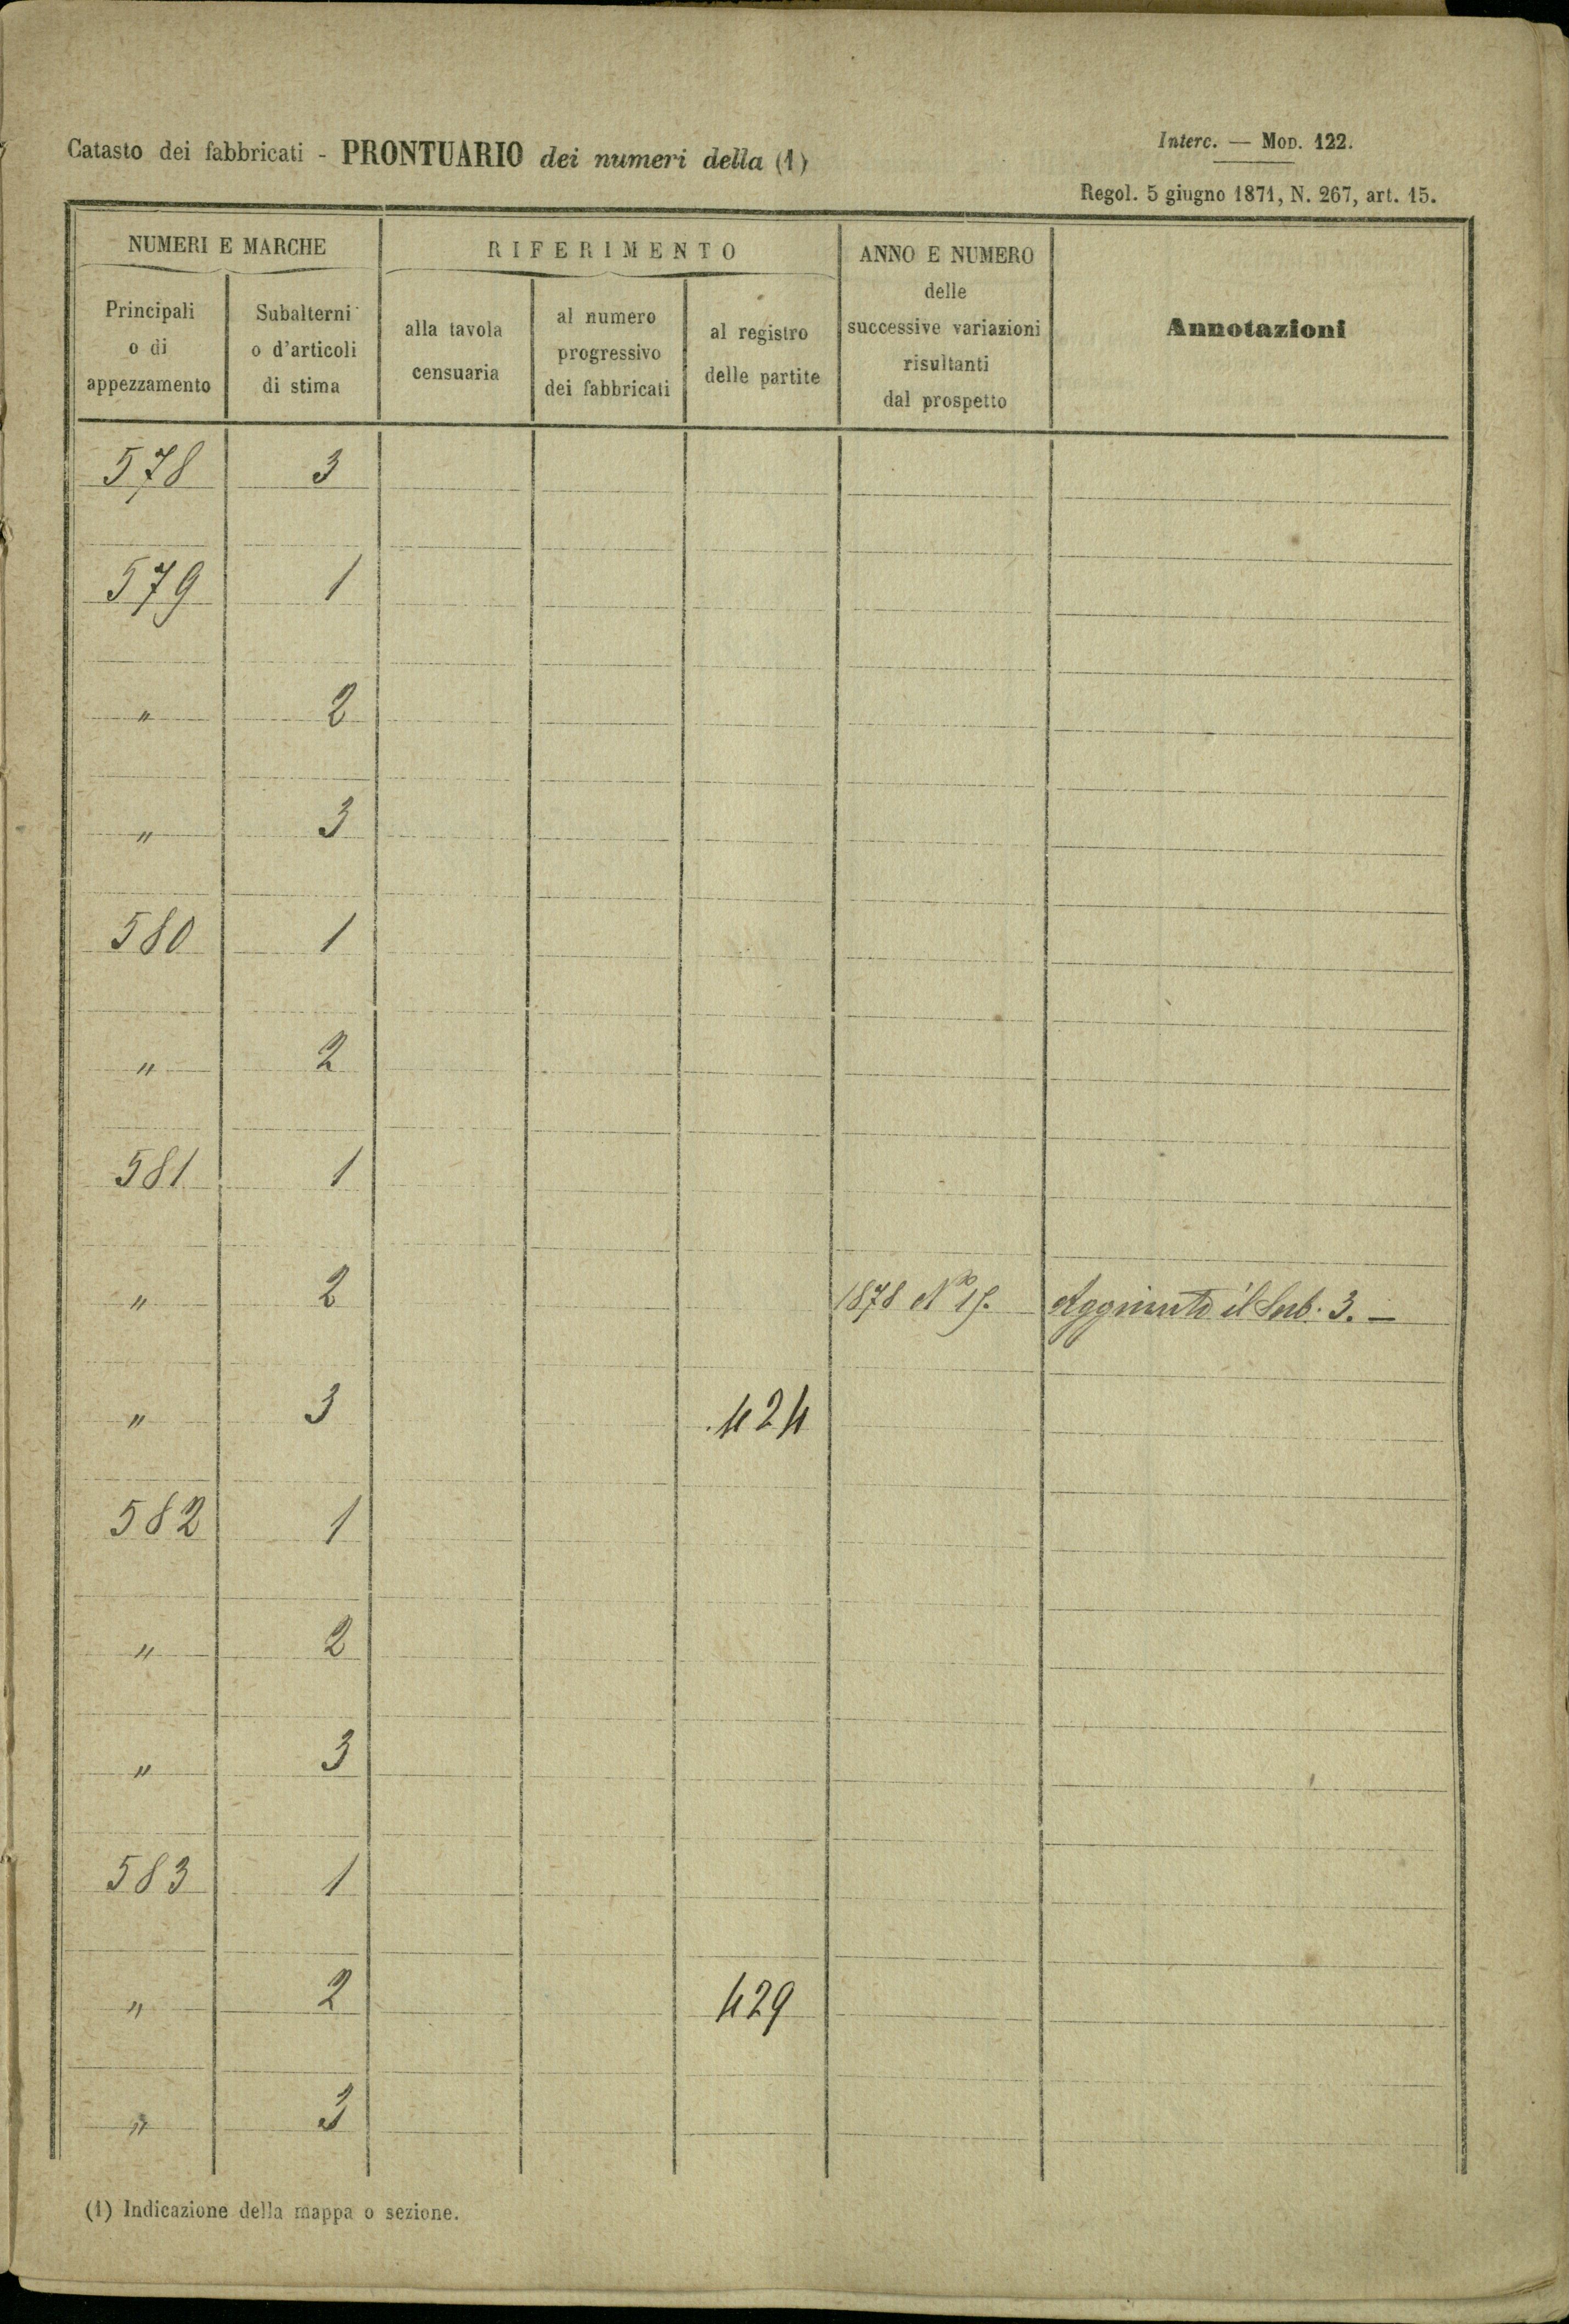 Catasto dei fabbricati - PRONTUARIO dei numeri della (1)
Interc. — Mod. 122.
Regol. 5 giugno 1871, N. 267, art. 15.
NUMERI E MARCHE
RIFERIMENTO
ANNO E NUMERO
delle
successive variazioni
risultanti
dal prospetto
Annotazioni
Principali
o di
appezzamento
Subalterni
o d'articoli
di stima
alla tavola
censuaria
al numero
progressivo
dei fabbricati
al registro
delle partite
578 3
579 1
" 2
" 3
580 1
" 2
581 1
" 2 1878 No Aggiunto il Sub. 3. —
" 3 424
582 1
" 2
" 3
583 1
" 2 429
" 3
(1) Indicazione della mappa o sezione.